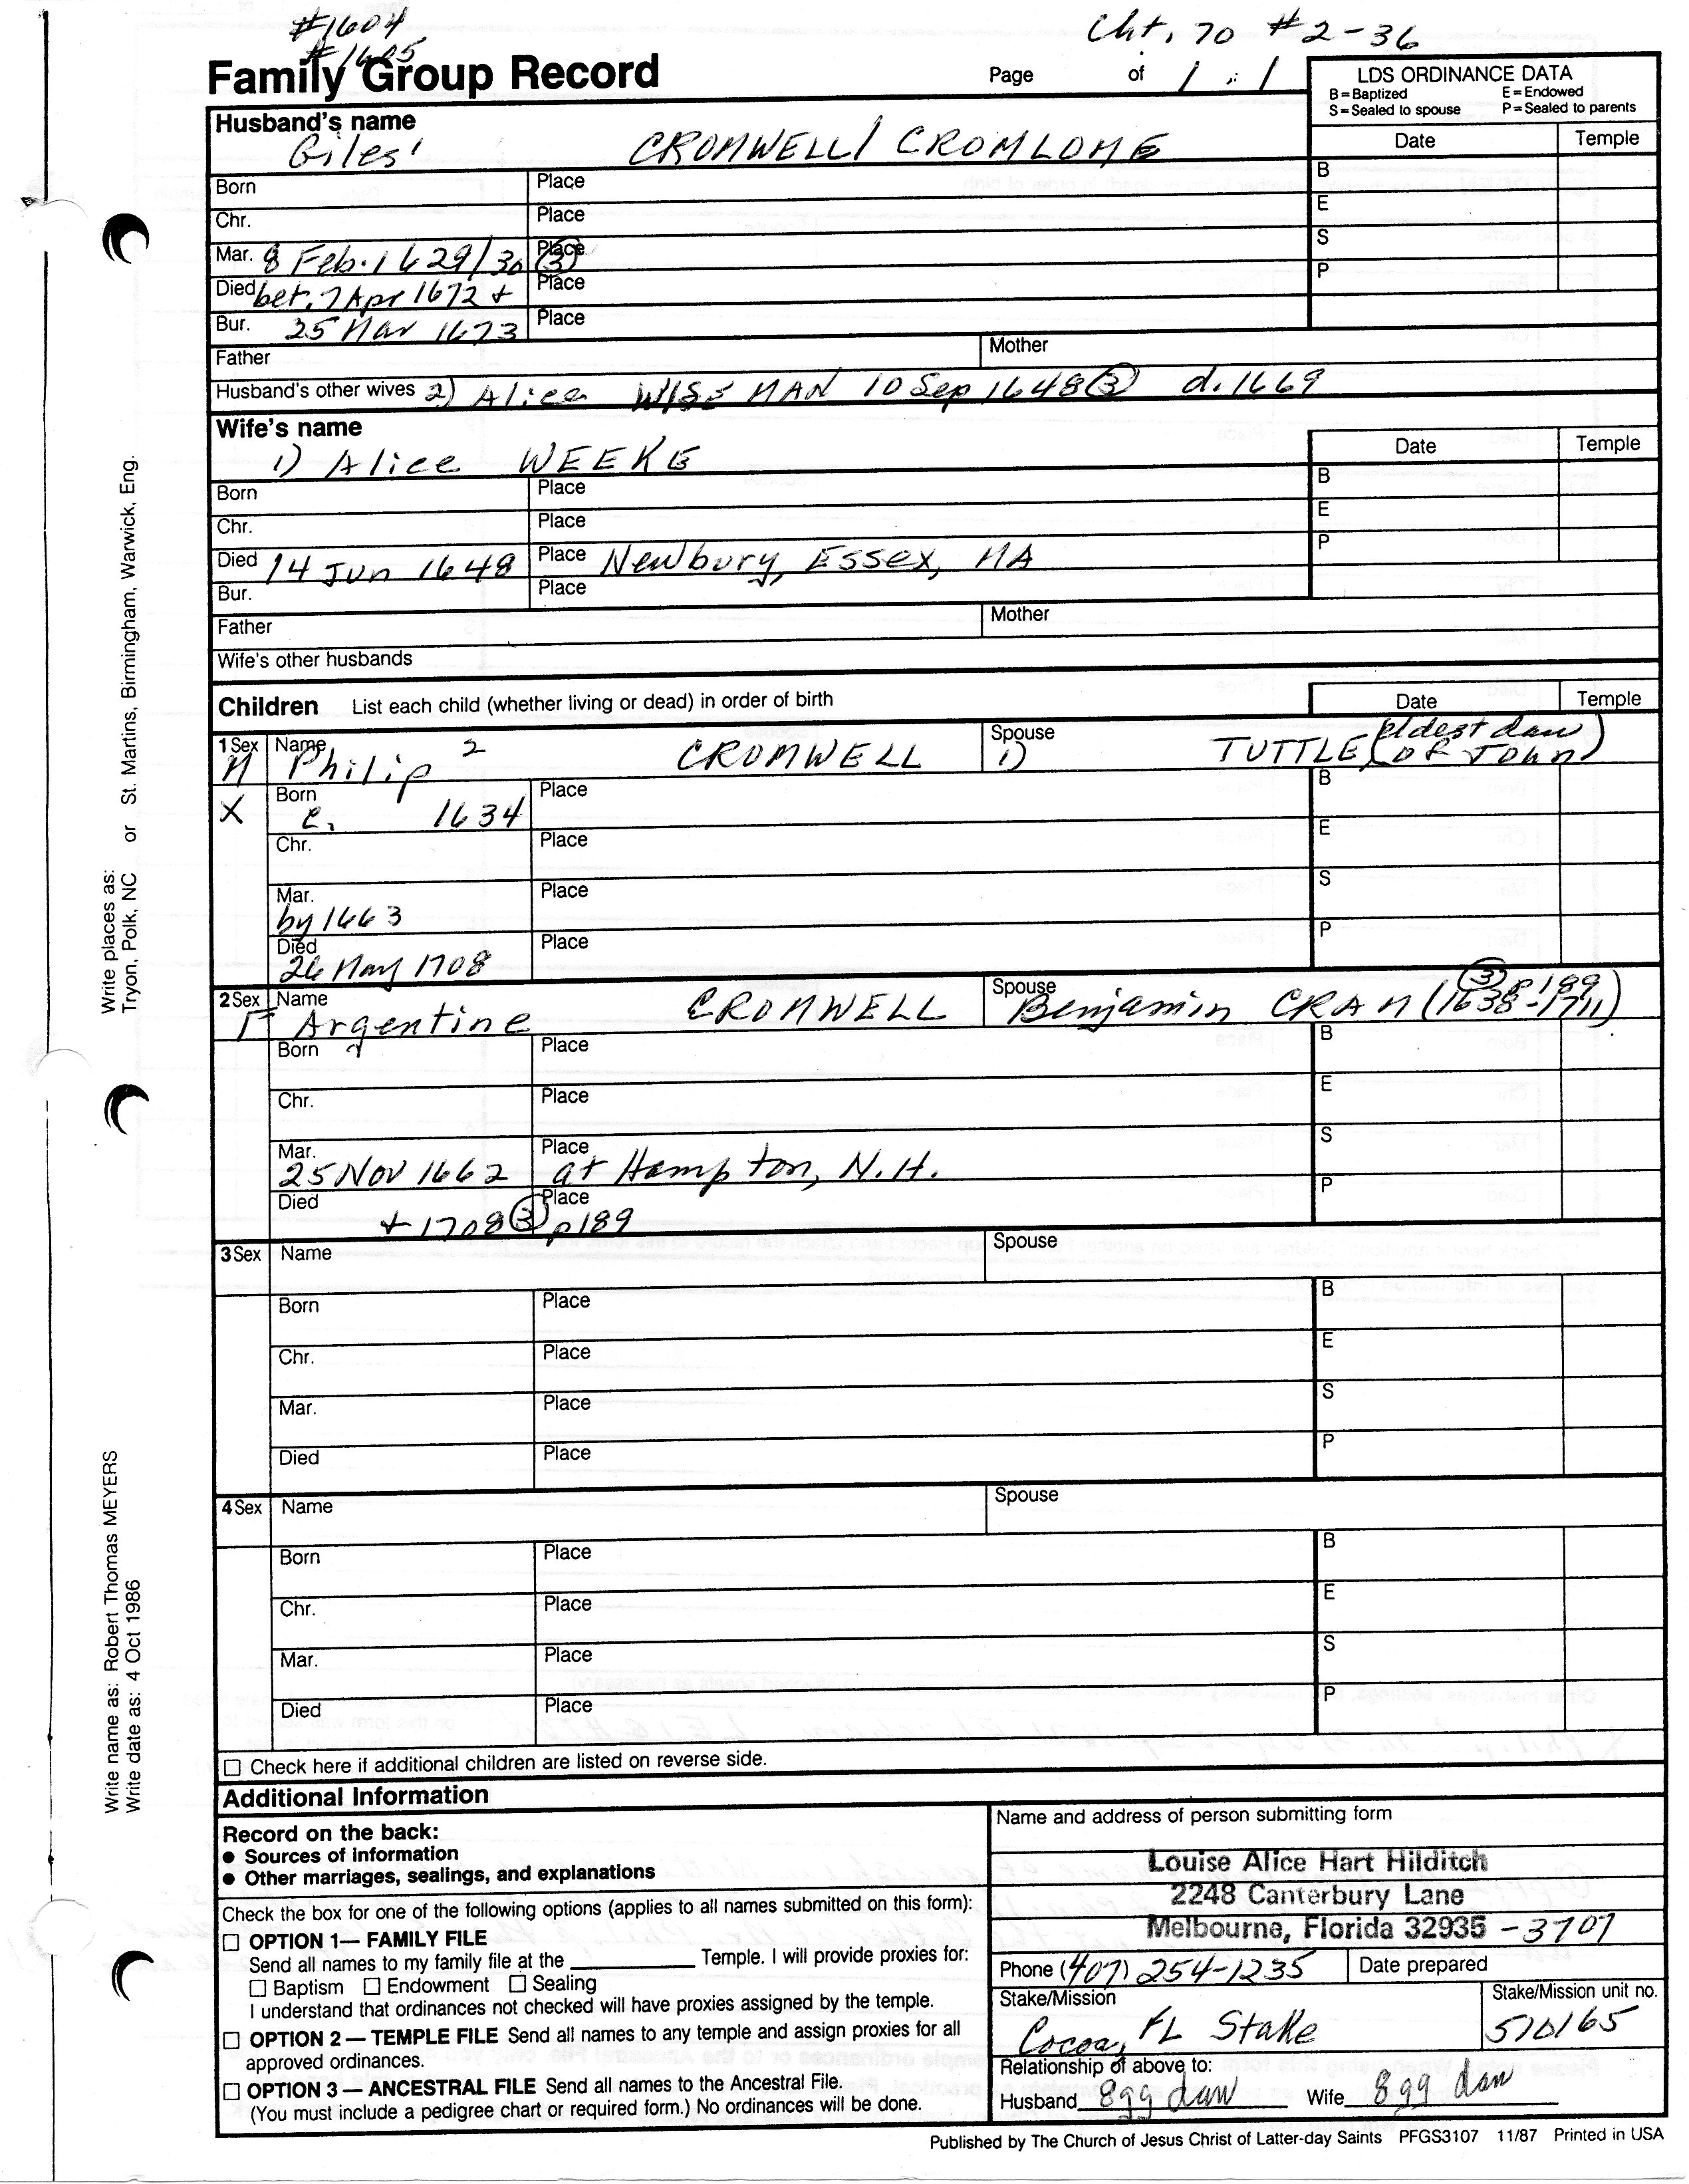 #1604
#1605
Cht. 70 #2-36
Family Group Record
Page of 1 : 1
LDS ORDINANCE DATA
B=Baptized E=Endowed
S=Sealed to spouse P=Sealed to parents
Husband's name
Giles¹ CROMWELL/ CROMLOME
Date Temple
Born Place B
Chr. Place E
Mar. 8 Feb. 1629/30 (3) Place S
Died bet. 7 Apr 1672 + Place P
Bur. 25 Mar 1673 Place
Father Mother
Husband's other wives 2) Alice WISEMAN 10 Sep 1648 (3) d. 1669
Wife's name
1) Alice WEEKE
Date Temple
Born Place B
Chr. Place E
Died 14 Jun 1648 Place Newbury, Essex, MA P
Bur. Place
Father Mother
Wife's other husbands
Children List each child (whether living or dead) in order of birth Date Temple
1 Sex M Name Philip² CROMWELL Spouse 1) TUTTLE (eldest daw OR John)
X
Born c. 1634 Place B
Chr. Place E
Mar. by 1663 Place S
Died 26 May 1708 Place P
2 Sex F Name Argentine CROMWELL Spouse Benjamin CRAM (1638-1711) (3) p189
Born Place B
Chr. Place E
Mar. 25 Nov 1662 Place at Hampton, N.H. S
Died + 1708 (3) p189 Place P
3 Sex Name Spouse
Born Place B
Chr. Place E
Mar. Place S
Died Place P
4 Sex Name Spouse
Born Place B
Chr. Place E
Mar. Place S
Died Place P
☐ Check here if additional children are listed on reverse side.
Additional Information
Record on the back:
● Sources of information
● Other marriages, sealings, and explanations
Check the box for one of the following options (applies to all names submitted on this form):
☐ OPTION 1— FAMILY FILE
Send all names to my family file at the ____________ Temple. I will provide proxies for:
☐ Baptism ☐ Endowment ☐ Sealing
I understand that ordinances not checked will have proxies assigned by the temple.
☐ OPTION 2 — TEMPLE FILE Send all names to any temple and assign proxies for all
approved ordinances.
☐ OPTION 3 — ANCESTRAL FILE Send all names to the Ancestral File.
(You must include a pedigree chart or required form.) No ordinances will be done.
Name and address of person submitting form
Louise Alice Hart Hilditch
2248 Canterbury Lane
Melbourne, Florida 32935 -3707
Phone (407) 254-1235 Date prepared
Stake/Mission Cocoa, FL Stake
Stake/Mission unit no. 510165
Relationship of above to:
Husband 8gg daw Wife 8gg daw
Published by The Church of Jesus Christ of Latter-day Saints PFGS3107 11/87 Printed in USA
Write places as: St. Martins, Birmingham, Warwick, Eng.
Tryon, Polk, NC or
Write name as: Robert Thomas MEYERS
Write date as: 4 Oct 1986